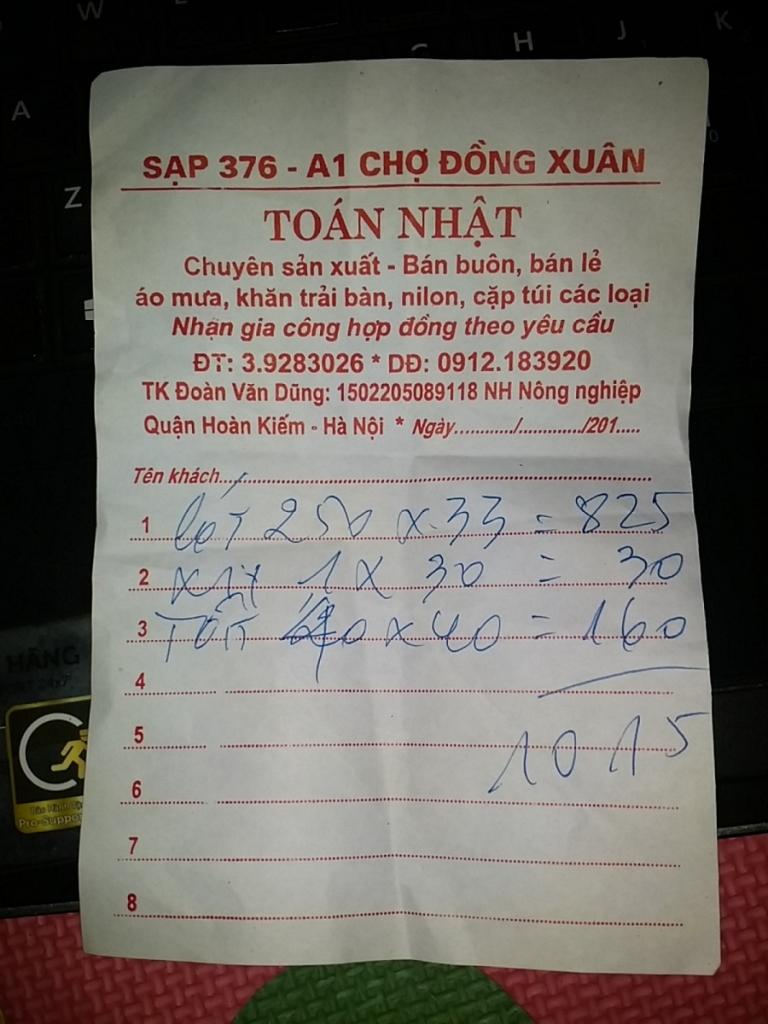 SẠP 376 - A1 CHỢ ĐỒNG XUÂN
TOÁN NHẬT
Chuyên sản xuất - Bán buôn, bán lẻ
áo mưa, khăn trải bàn, nilon, cặp túi các loại
Nhận gia công hợp đồng theo yêu cầu
ĐT: 3.9283026 * DĐ: 0912.183920
TK Đoàn Văn Dũng: 1502205089118 NH Nông nghiệp
Quận Hoàn Kiếm - Hà Nội * Ngày............/............/201.....
Tên khách
1 250 x 33 = 825
2 1 x 30 = 30
3 x 40 = 160
4
1015
5
6
7
8
W
H
J
K
A
Z
HÃNG
Pro-Support